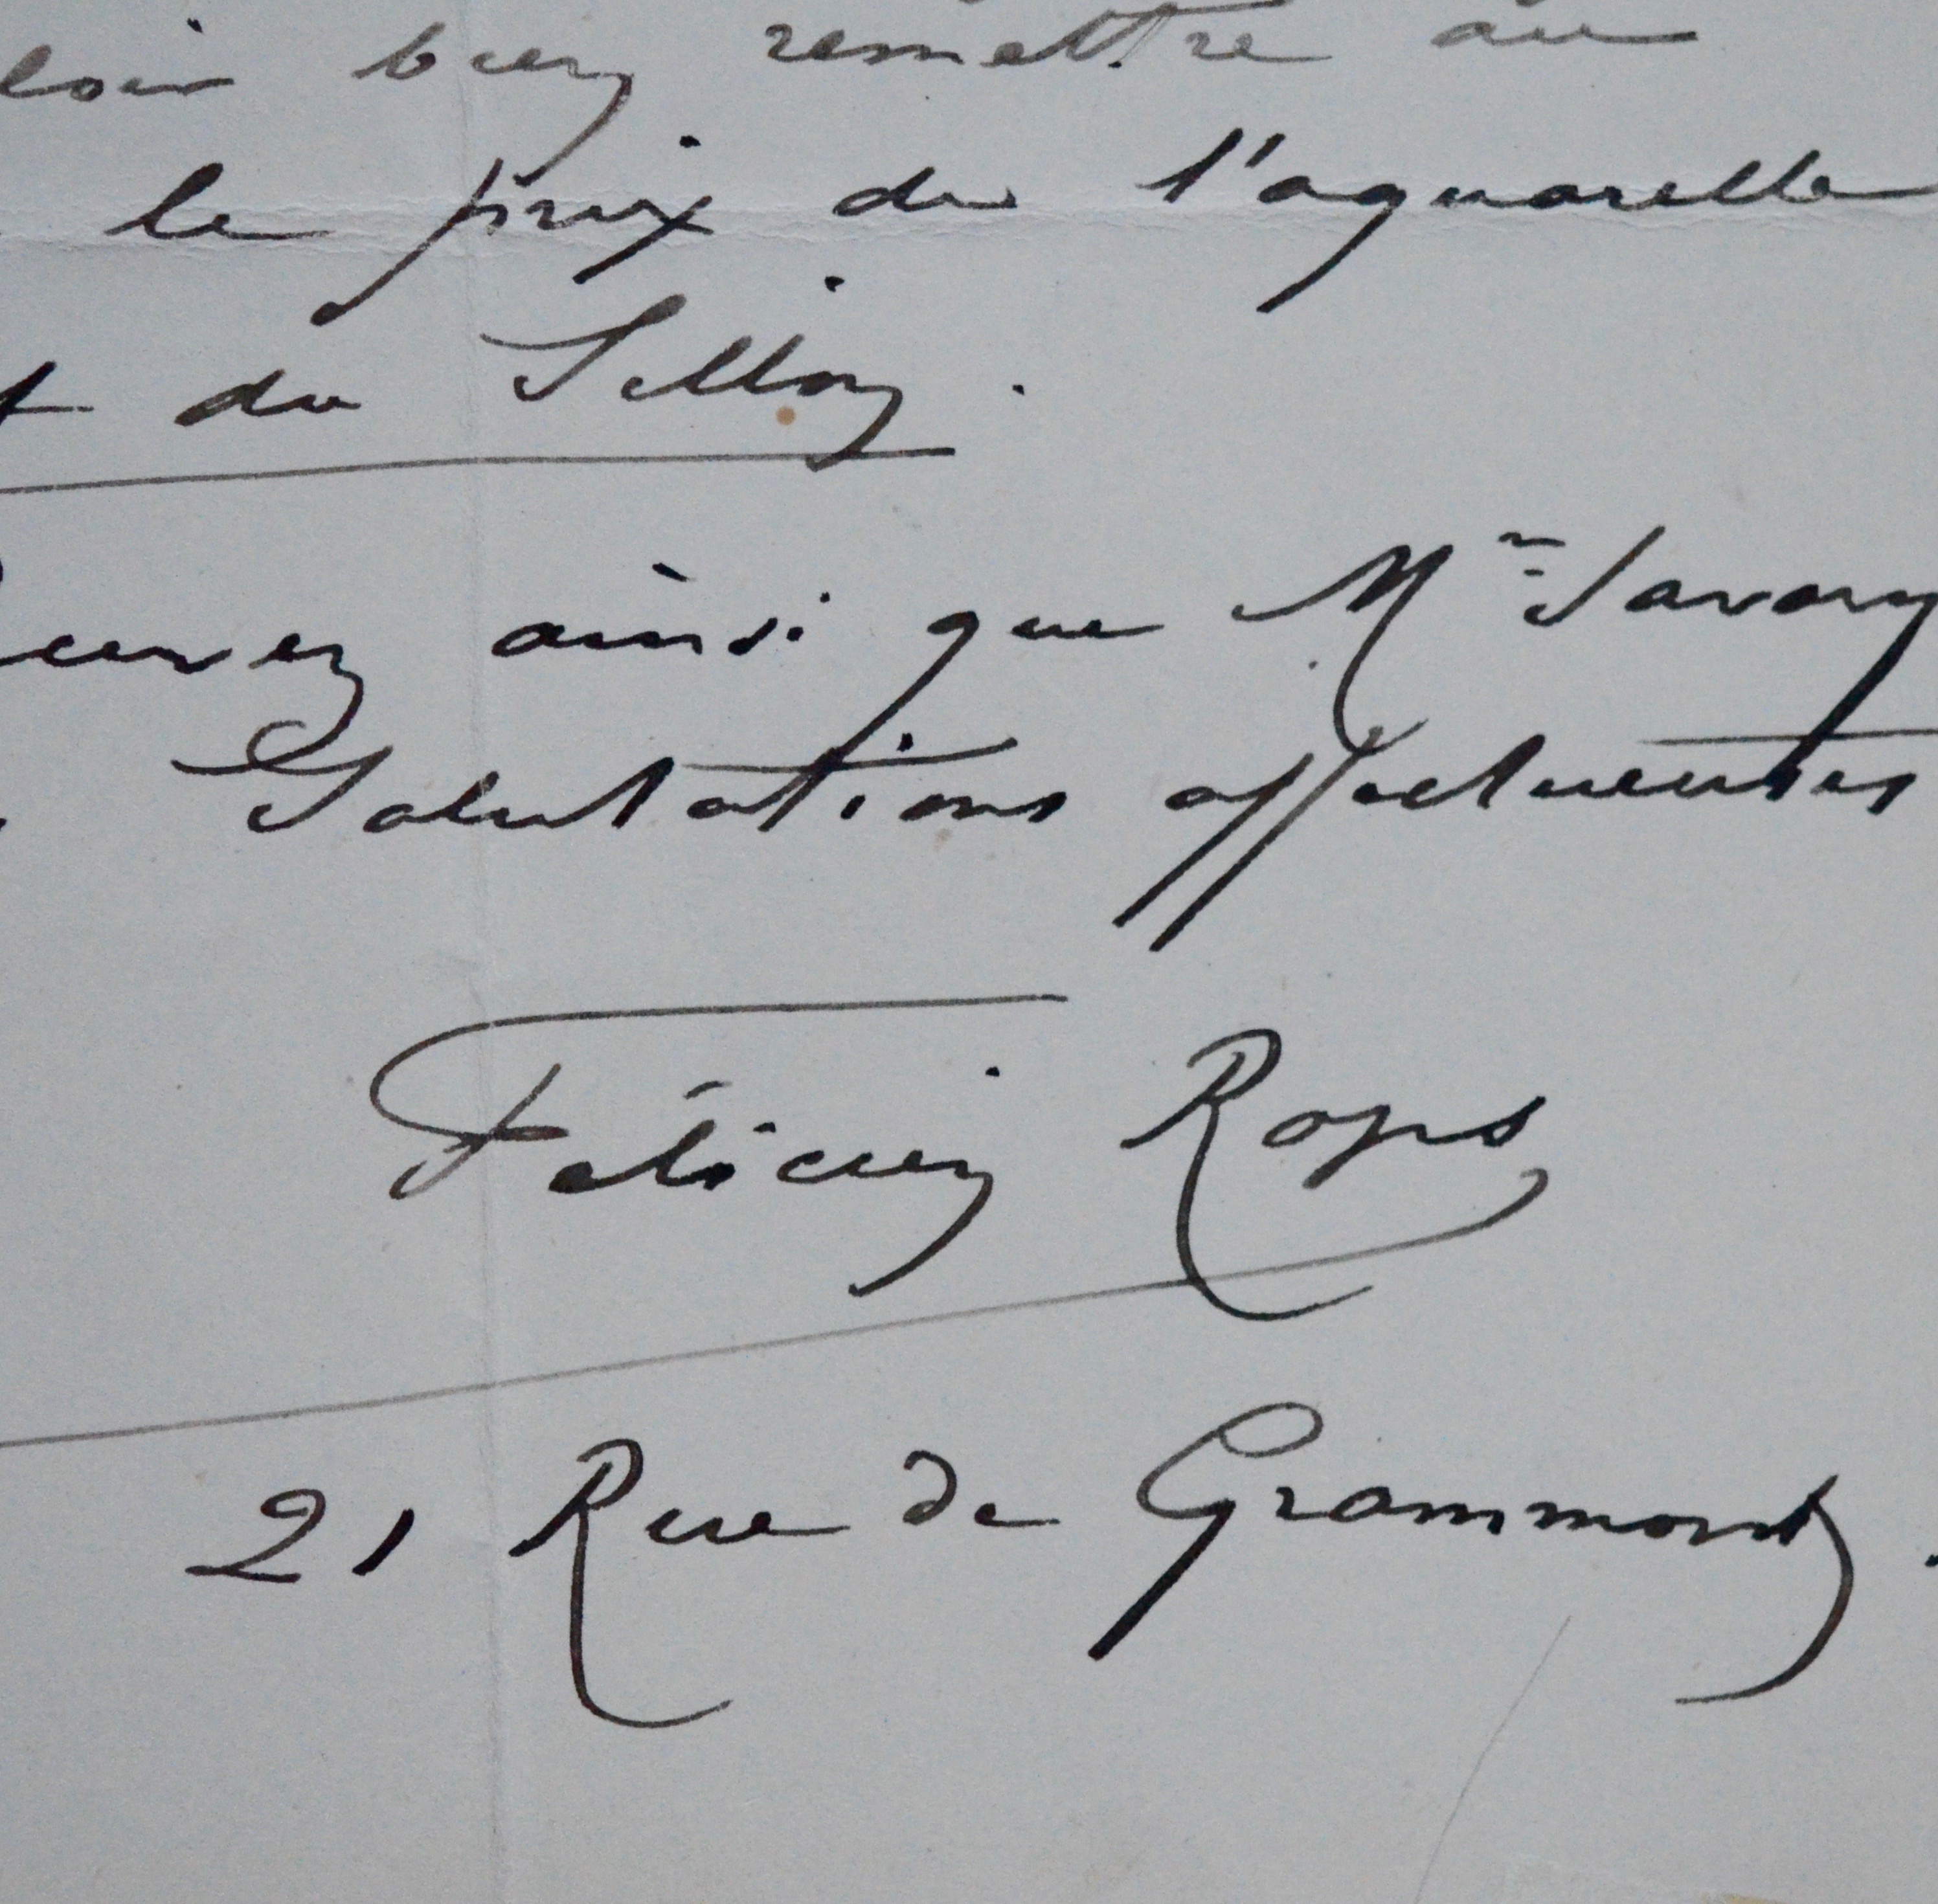 loir bien remettre au
le prix de l'aquarelle
du Sillon.
ainsi que Mr Savary
Salutations affectueuses
Félicien Rops
21 Rue de Grammont.